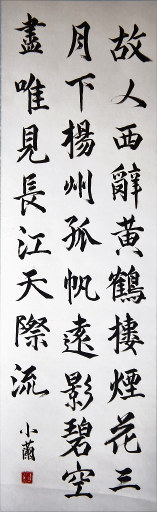 故人西辭黃鶴樓煙花三
月下楊州孤帆遠影碧空
盡唯見長江天際流
小